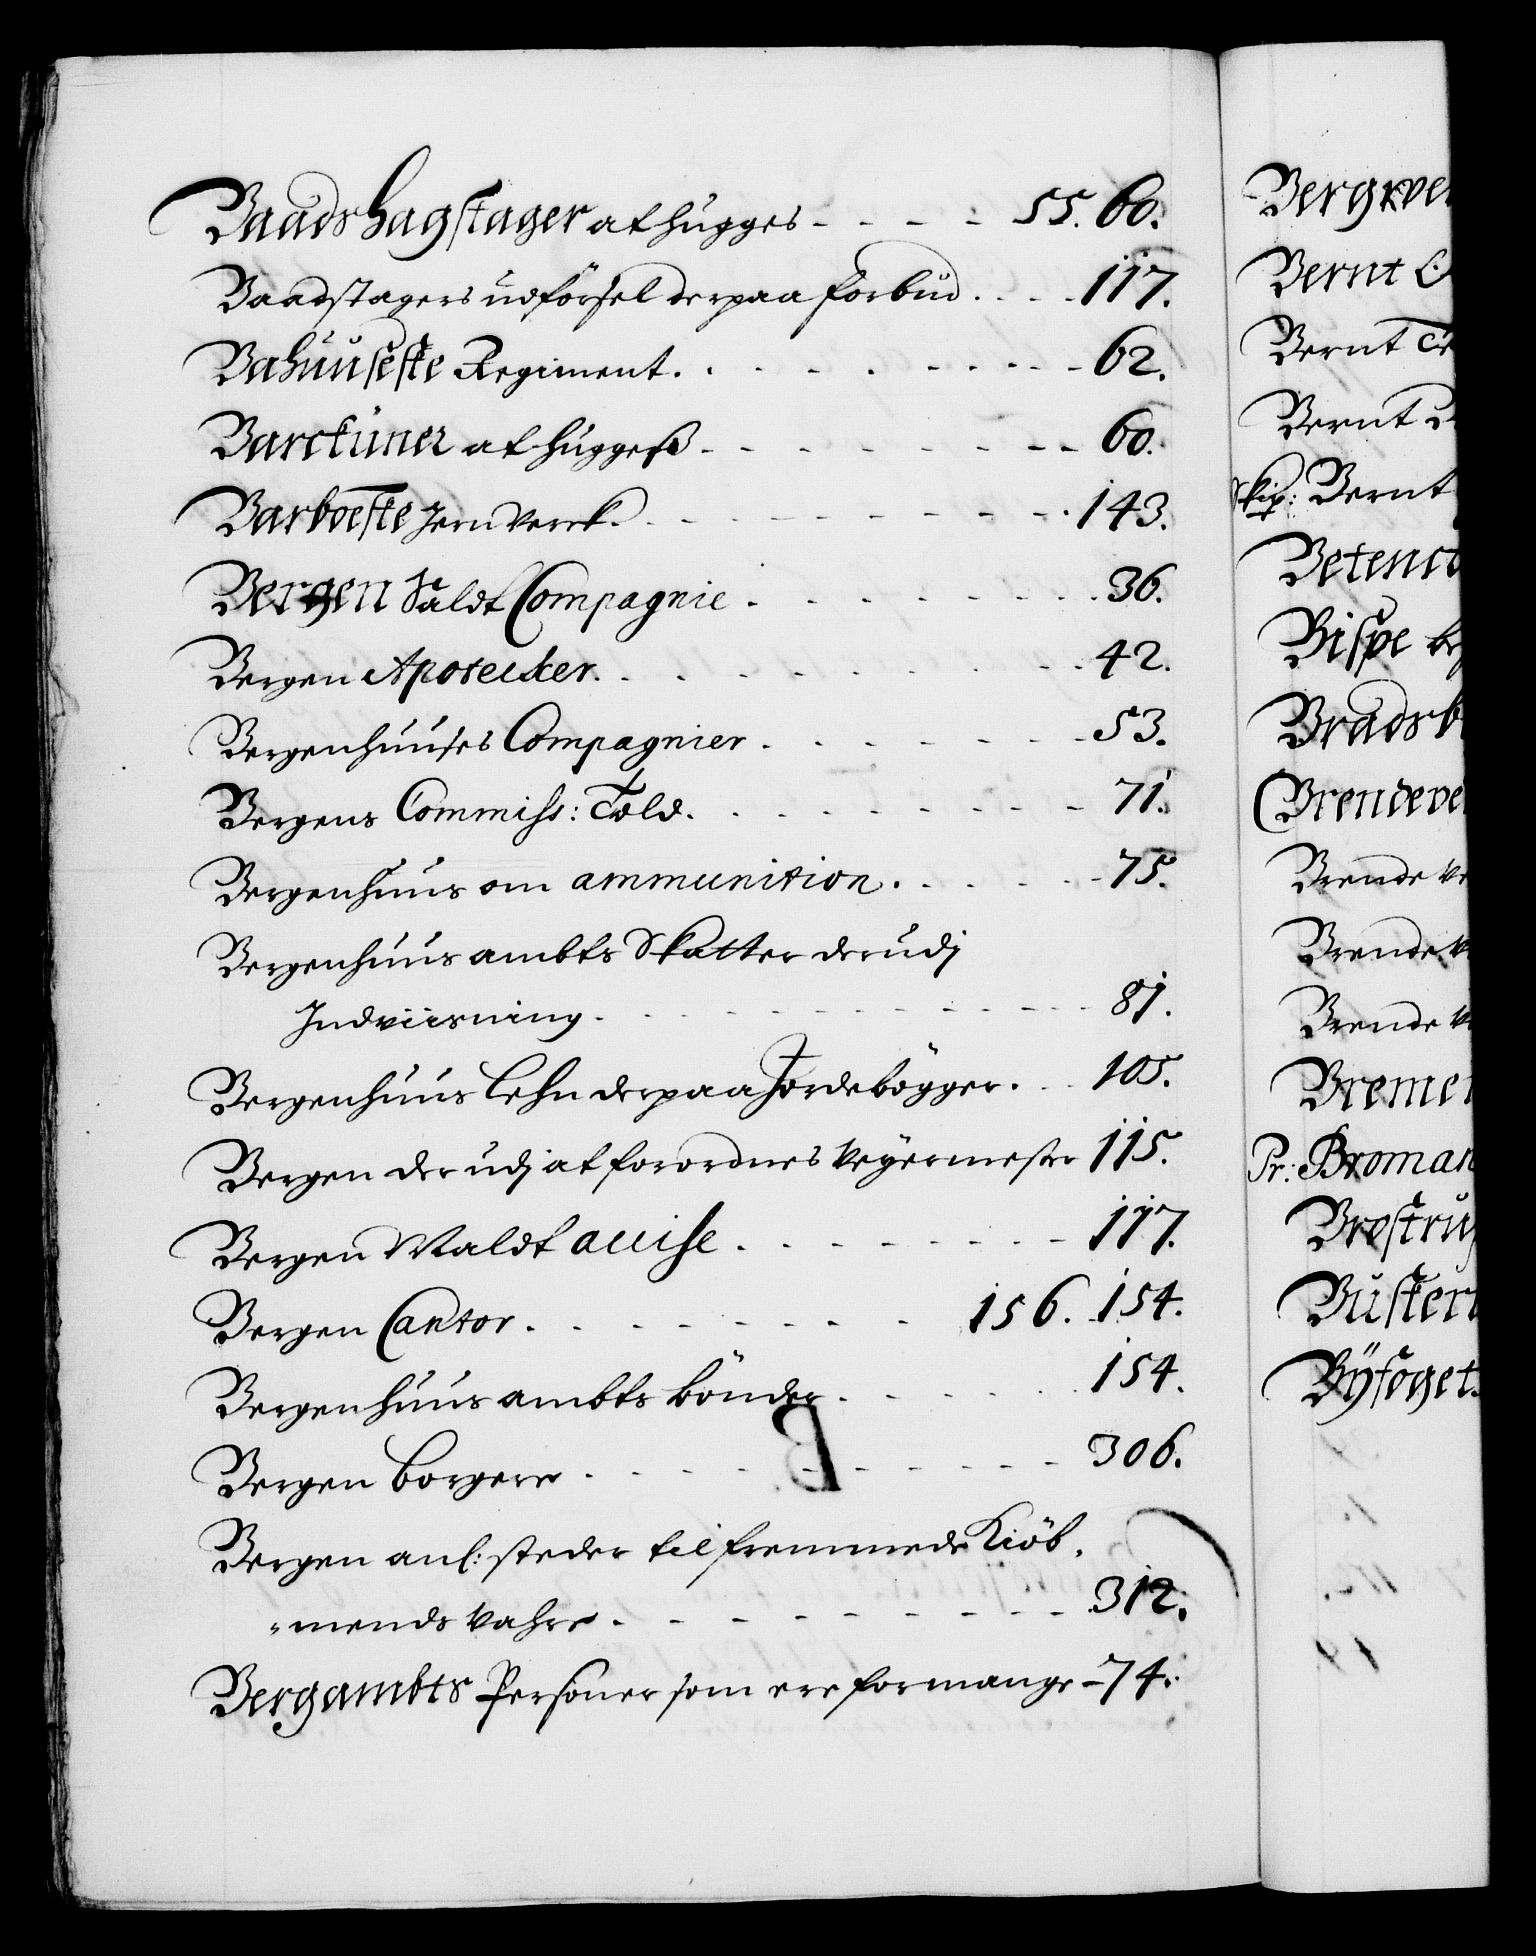 Baads hagstager at hugges - - - - 55. 60.
Baadstagers udförsel derpaa forbud. - - - 117.
Bahuuseske Regiment. - - - - - - - - 62.
Barckuner at huggeß - - - - - - - - 60.
Barboeske Jern Verck. - - - - - - - - 143.
Bergen Saldt Compagnie. - - - - - - - 36.
Bergen Apotecker. - - - - - - - - 42.
Bergenhuuses Compagnier. - - - - - - 53.
Bergens Commiss: Told. - - - - - - - 71.
Bergenhuus om ammunition. - - - - - 75.
Bergenhuus ambts Skatter derudj
Indviisning. - - - - - - - - - 81.
Bergenhuus Lehn derpaa Jordebögger. - - 105.
Bergen der udj at forordnes Veyermester 115.
Bergen Maldt accise. - - - - - - - 117.
Bergen Cantor. - - - - - - - - 156. 154.
Bergenhuus ambts bönder. - - - - - 154.
Bergen borgere - - - - - - - - - 306.
Bergen anl: steder til fremmede Kiöb,
„mends Vahre. - - - - - - - - - 312.
Bergambts Personer som ere formange - 74.
Bergkve
Bernt
Bernt
Bernt
Skip: Bernt
Betenct
Bispe be
Bradsb
Brendeve
Brende ve
Brende v
Brende v
Bremer
Pr: Broman
Brostru
Busker
Byfoget.